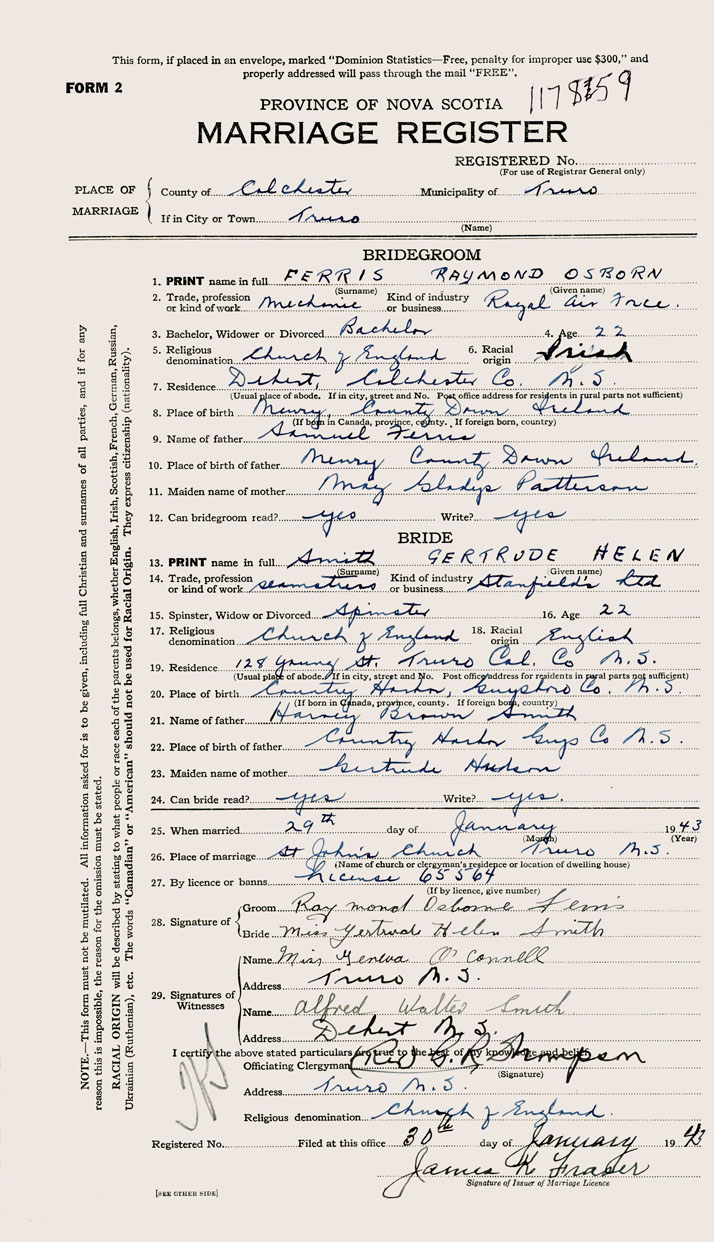 This form, if placed in an envelope, marked “Dominion Statistics—Free, penalty for improper use $300,” and
properly addressed will pass through the mail “FREE”.
FORM 2
PROVINCE OF NOVA SCOTIA
MARRIAGE REGISTER
REGISTERED No.
(For use of Registrar General only)
PLACE OF MARRIAGE
County of Colchester Municipality of Truro
If in City or Town Truro
(Name)
BRIDEGROOM
1. PRINT name in full FERRIS RAYMOND OSBORN
(Surname) (Given name)
2. Trade, profession or kind of work Mechanic Kind of industry or business Royal Air Force.
3. Bachelor, Widower or Divorced Bachelor 4. Age 22
5. Religious denomination Church of England 6. Racial origin Irish
7. Residence Debert, Colchester Co. N.S.
(Usual place of abode. If in city, street and No. Post office address for residents in rural parts not sufficient)
8. Place of birth Newry, County Down Ireland
(If born in Canada, province, county. If foreign born, country)
9. Name of father Samuel Ferris
10. Place of birth of father Newry County Down Ireland.
11. Maiden name of mother May Gladys Patterson
12. Can bridegroom read? yes Write? yes
BRIDE
13. PRINT name in full Smith GERTRUDE HELEN
(Surname) (Given name)
14. Trade, profession or kind of work seamstress Kind of industry or business Stanfield's Ltd
15. Spinster, Widow or Divorced Spinster 16. Age 22
17. Religious denomination Church of England 18. Racial origin English
19. Residence 128 Young St. Truro Col. Co N.S.
(Usual place of abode. If in city, street and No. Post office address for residents in rural parts not sufficient)
20. Place of birth Country Harbor, Guysboro Co. N.S.
(If born in Canada, province, county. If foreign born, country)
21. Name of father Harvey Brown Smith
22. Place of birth of father Country Harbor Guys Co N.S.
23. Maiden name of mother Gertrude Hudson
24. Can bride read? yes Write? yes.
25. When married 29th day of January 1943
(Month) (Year)
26. Place of marriage St John's Church Truro N.S.
(Name of church or clergyman's residence or location of dwelling house)
27. By licence or banns License 65564
(If by licence, give number)
28. Signature of
Groom Raymond Osborne Ferris
Bride Miss Gertrude Helen Smith
29. Signatures of Witnesses
Name Miss Geneva O'Connell
Address Truro N.S.
Name Alfred Walter Smith
Address Debert N.S.
I certify the above stated particulars are true to the best of my knowledge and belief.
Officiating Clergyman (Rev) G. R. Thompson
(Signature)
Address Truro N.S.
Religious denomination Church of England.
Registered No. Filed at this office 30th day of January 1943
James K Fraser
Signature of Issuer of Marriage Licence
[SEE OTHER SIDE]
NOTE.—This form must not be mutilated. All information asked for is to be given, including full Christian and surnames of all parties, and if for any
reason this is impossible, the reason for the omission must be stated.
RACIAL ORIGIN will be described by stating to what people or race each of the parents belongs, whether English, Irish, Scottish, French, German, Russian,
Ukrainian (Ruthenian), etc. The words “Canadian” or “American” should not be used for Racial Origin. They express citizenship (nationality).